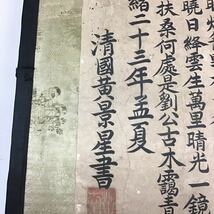 曉日絳雲生萬里晴光一鏡
扶桑何處是劉公古木靄青
緒二十三年孟夏
清國黃景星書